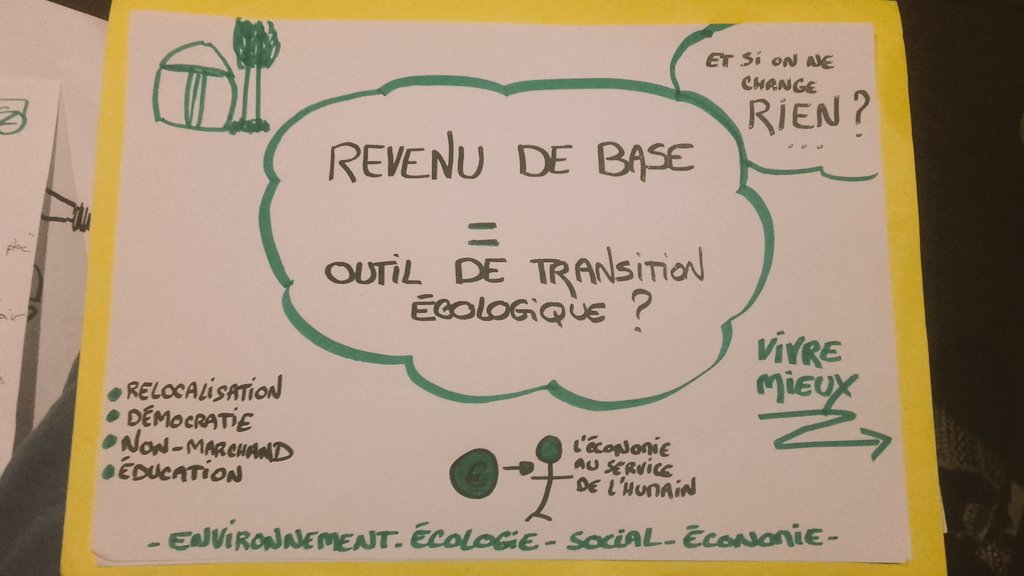 ET SI ON NE
CHANGE
RIEN ?
...
REVENU DE BASE
=
OUTIL DE TRANSITION
ÉCOLOGIQUE ?
VIVRE
MIEUX
• RELOCALISATION
• DÉMOCRATIE
• NON-MARCHAND
• ÉDUCATION
€
L'ÉCONOMIE
AU SERVICE
DE L'HUMAIN
- ENVIRONNEMENT - ÉCOLOGIE - SOCIAL - ÉCONOMIE -